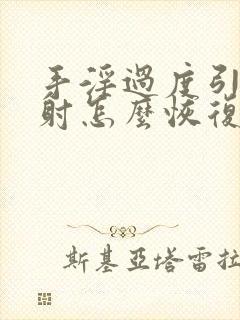 手淫過度引
射怎麼恢復
斯基亞塔雷拉